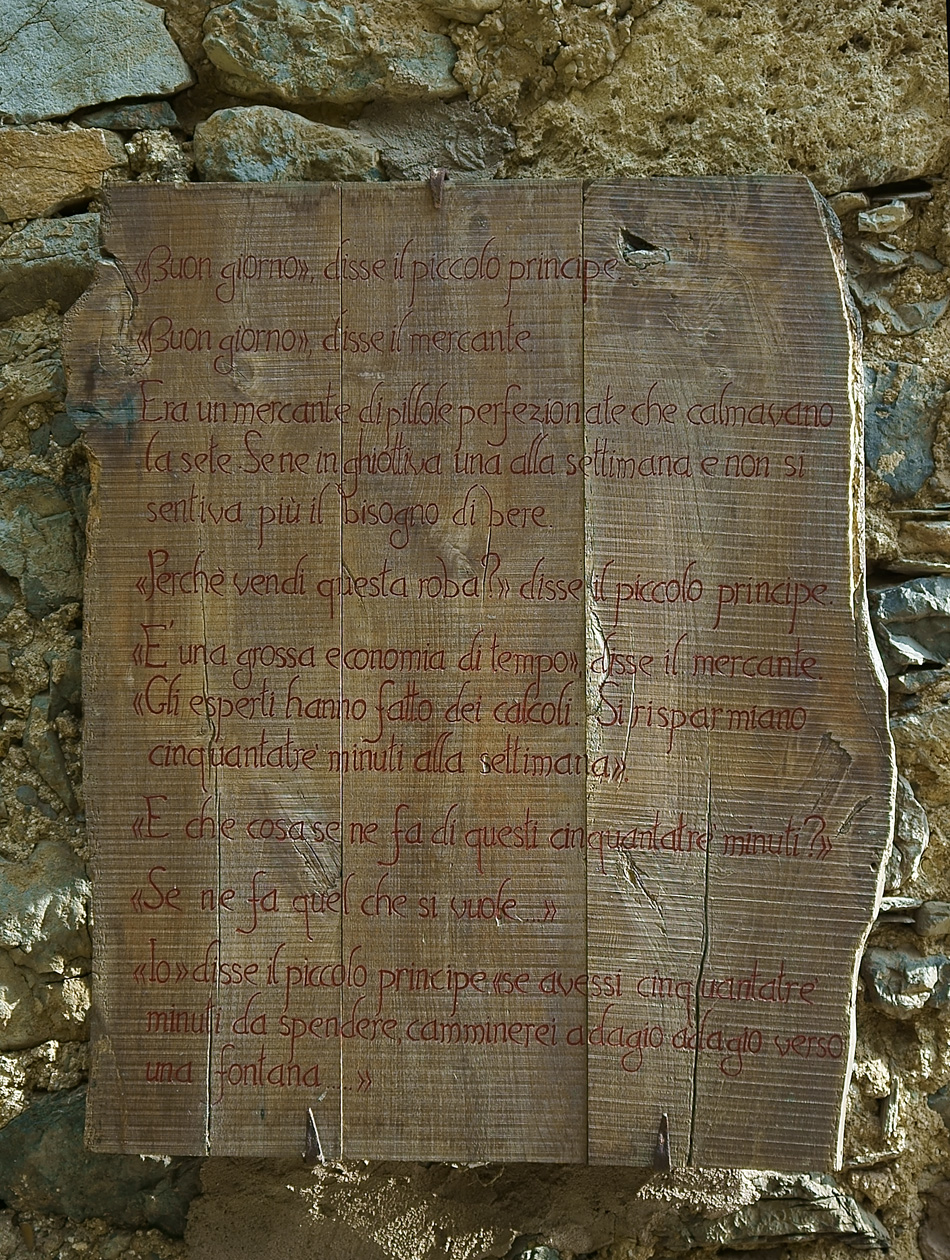 «Buon giorno», disse il piccolo principe
«Buon giorno», disse il mercante.
Era un mercante di pillole perfezionate che calmavano
la sete. Se ne inghiottiva una alla settimana e non si
sentiva più il bisogno di bere.
«Perchè vendi questa roba?» disse il piccolo principe.
«E' una grossa economia di tempo» disse il mercante.
«Gli esperti hanno fatto dei calcoli. Si risparmiano
cinquantatre' minuti alla settimana».
«E che cosa se ne fa di questi cinquantatre' minuti?»
«Se ne fa quel che si vuole...»
«Io» disse il piccolo principe «se avessi cinquantatre'
minuti da spendere, camminerei adagio adagio verso
una fontana.....»